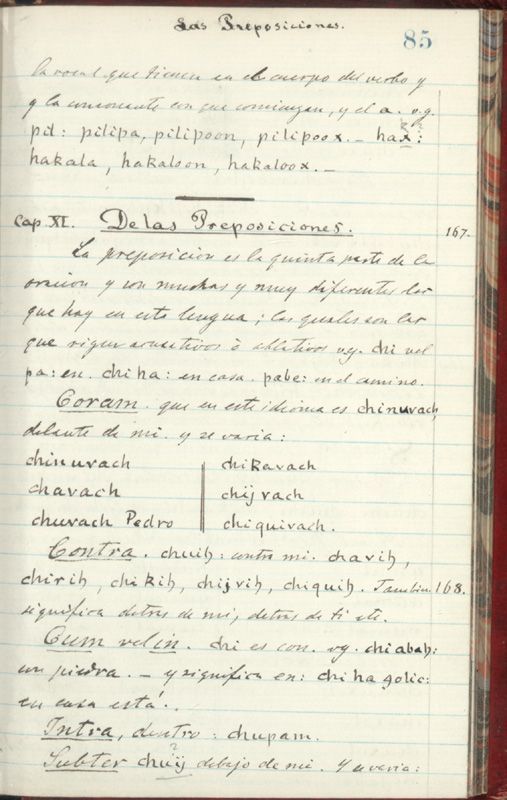 Las Preposiciones.
85
la vocal que tienen en el cuerpo del verbo y
y la consonante con que comienzan, y el a. v.g.
pil: pilipa, pilipoon, pilipoox. _ hax:
hakala, hakaloon, hakaloox. _
Cap. XI. De las Preposiciones. 167.
La preposicion es la quinta parte de la
oracion y son muchas y muy diferentes las
que hay en esta lengua; las quales son las
que rigen acusativos ò ablativos v.g. chi vel
pa: en. chi ha: en casa. pabe: en el camino.
Coram. que en este idioma es chinuvach,
delante de mi. y se varia:
chinuvach chikavach
chavach chijvach
chuvach Pedro chiquivach.
Contra. chuih: contra mi. chavih,
chirih, chikih, chijvih, chiquih. Tambien 168.
significa detras de mi, detras de ti etc.
Cum vel in. chi es con. vg. chiabah:
con piedra. _ y significa en: chi ha golic:
en casa está.
Intra, dentro: chupam.
Subter chuij debajo de me. Y se varia:
?